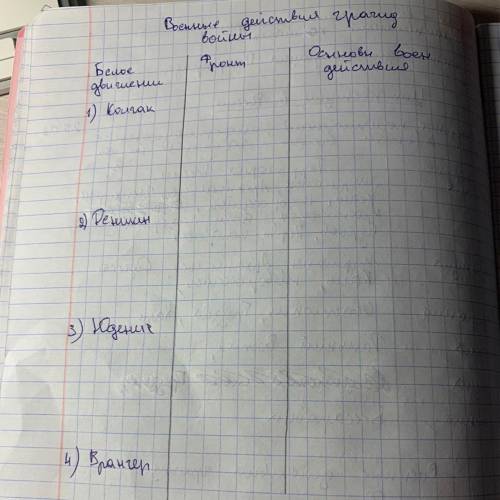 Военные действия гражд
войны
Белое движении
Фронт
Основн воен действия
1) Колчак
2) Деникин
3) Юденич
4) Врангер